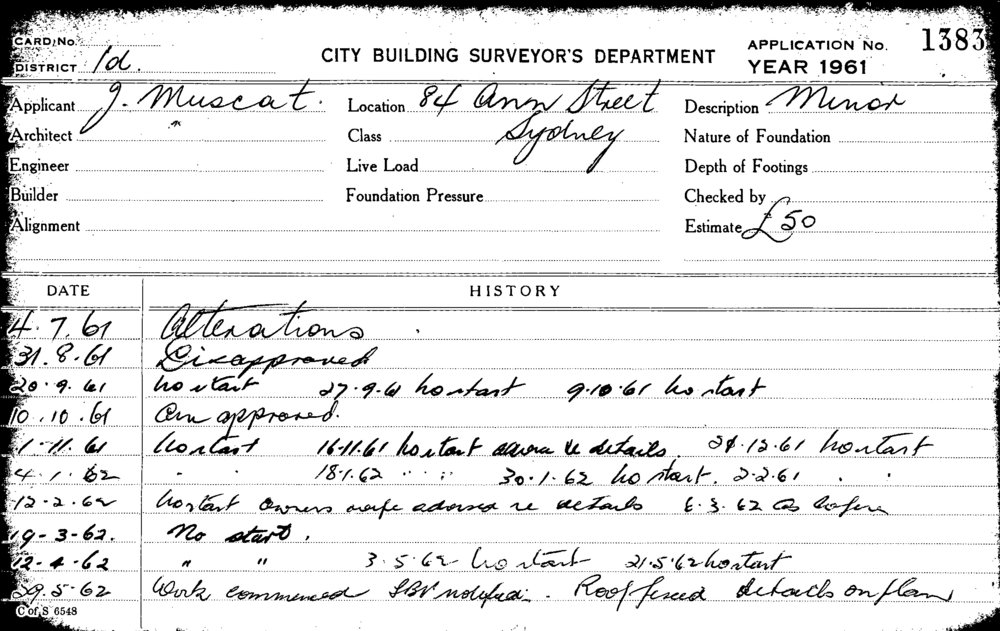 CARD No.
DISTRICT 1d.
CITY BUILDING SURVEYOR'S DEPARTMENT
APPLICATION No. 1383
YEAR 1961
Applicant J. Muscat. Location 84 Ann Street Description Minor
Architect " Class Sydney Nature of Foundation
Engineer Live Load Depth of Footings
Builder Foundation Pressure Checked by
Alignment Estimate £50
DATE HISTORY
4.7.61 Alterations
31.8.61 Disapproved
20.9.61 No start 27.9.61 No start 9.10.61 No start
10.10.61 approved.
1-11.61 No start 16.11.61 No start details. 12.61 No start
4.1.62 " " 18.1.62 " " 30.1.62 No start. 2.2.61 " "
12-2-62 No start Owners wife advised re details 6.3.62 as before
19-3-62. No start.
12-4-62 " " 3.5.62 No start 21.5.62 No start
29.5-62 Work commenced notified. Roof details on plan
C of S 6548